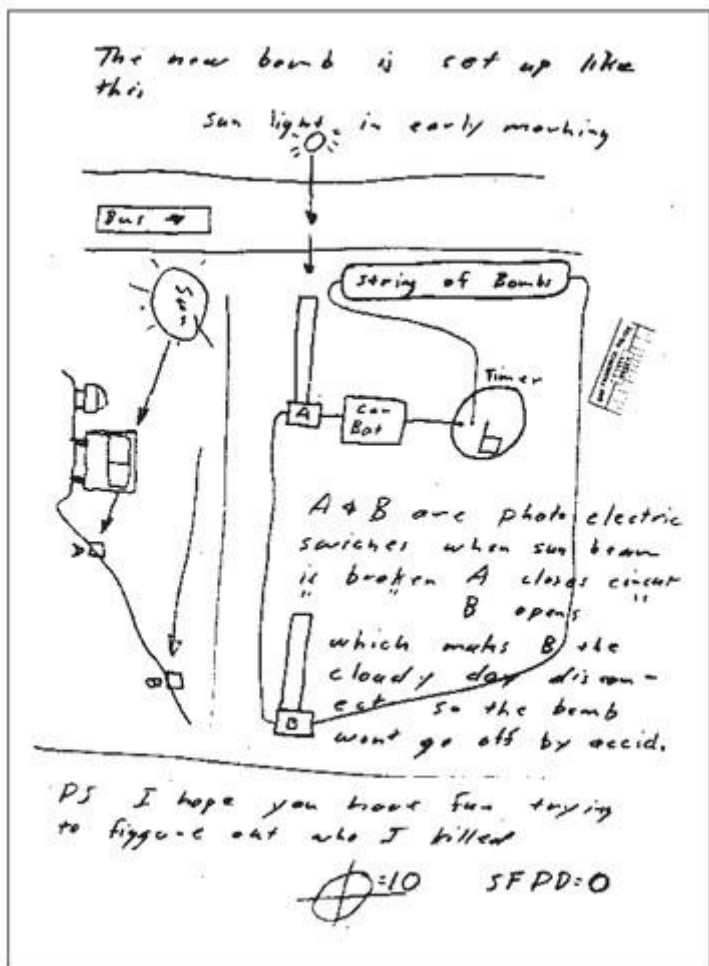 The new bomb is set up like
this
sun light in early morning
Bus
Sun
string of Bombs
Timer
A
car
Bat
A & B are photo electric
swiches when sun beam
is broken A closes circut
" " B opens "
which maks B the
cloudy day discon-
ect so the bomb
wont go off by accid.
A
B
B
PS I hope you have fun trying
to figgure out who I killed
=10 SFPD=0